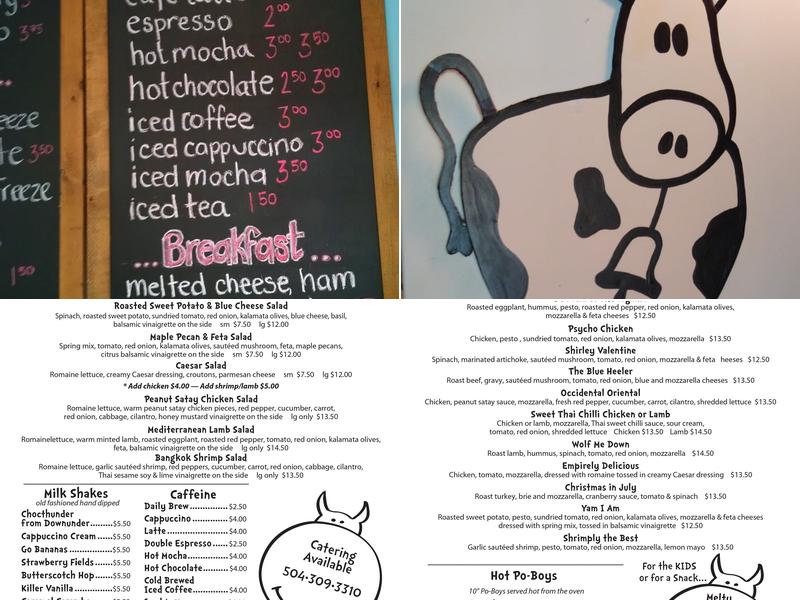 3⁷⁵
espresso 2⁰⁰
hot mocha 3⁰⁰ 3⁵⁰
hot chocolate 2⁵⁰ 3⁰⁰
iced coffee 3⁰⁰
iced cappuccino 3⁰⁰
3⁵⁰
iced mocha 3⁵⁰
iced tea 1⁵⁰
...Breakfast...
1⁵⁰
melted cheese, ham
Roasted Sweet Potato & Blue Cheese Salad
Spinach, roasted sweet potato, sundried tomato, red onion, kalamata olives, blue cheese, basil,
balsamic vinaigrette on the side sm $7.50 lg $12.00
Maple Pecan & Feta Salad
Spring mix, tomato, red onion, kalamata olives, sautéed mushroom, feta, maple pecans,
citrus balsamic vinaigrette on the side sm $7.50 lg $12.00
Caesar Salad
Romaine lettuce, creamy Caesar dressing, croutons, parmesan cheese sm $7.50 lg $12.00
* Add chicken $4.00 — Add shrimp/lamb $5.00
Peanut Satay Chicken Salad
Romaine lettuce, warm peanut satay chicken pieces, red pepper, cucumber, carrot,
red onion, cabbage, cilantro, honey mustard vinaigrette on the side lg only $13.50
Mediterranean Lamb Salad
Romainelettuce, warm minted lamb, roasted eggplant, roasted red pepper, tomato, red onion, kalamata olives,
feta, balsamic vinaigrette on the side lg only $14.50
Bangkok Shrimp Salad
Romaine lettuce, garlic sautéed shrimp, red peppers, cucumber, carrot, red onion, cabbage, cilantro,
Thai sesame soy & lime vinaigrette on the side lg only $13.50
Milk Shakes
old fashioned hand dipped
Chocthunder
from Downunder.........$5.50
Cappuccino Cream.....$5.50
Go Bananas...............$5.50
Strawberry Fields.......$5.50
Butterscotch Hop.......$5.50
Killer Vanilla..............$5.50
Caffeine
Daily Brew..............$2.50
Cappuccino.............$4.00
Latte......................$4.00
Double Espresso......$2.50
Hot Mocha..............$4.00
Hot Chocolate..........$4.00
Cold Brewed
Iced Coffee..............$4.00
Catering
Available
504·309·3310
Roasted eggplant, hummus, pesto, roasted red pepper, red onion, kalamata olives,
mozzarella & feta cheeses $12.50
Psycho Chicken
Chicken, pesto , sundried tomato, red onion, kalamata olives, mozzarella $13.50
Shirley Valentine
Spinach, marinated artichoke, sautéed mushroom, tomato, red onion, mozzarella & feta heeses $12.50
The Blue Heeler
Roast beef, gravy, sautéed mushroom, tomato, red onion, blue and mozzarella cheeses $13.50
Occidental Oriental
Chicken, peanut satay sauce, mozzarella, fresh red pepper, cucumber, carrot, cilantro, shredded lettuce $13.50
Sweet Thai Chilli Chicken or Lamb
Chicken or lamb, mozzarella, Thai sweet chilli sauce, sour cream,
tomato, red onion, shredded lettuce Chicken $13.50 Lamb $14.50
Wolf Me Down
Roast lamb, hummus, spinach, tomato, red onion, mozzarella $14.50
Empirely Delicious
Chicken, tomato, mozzarella, dressed with romaine tossed in creamy Caesar dressing $13.50
Christmas in July
Roast turkey, brie and mozzarella, cranberry sauce, tomato & spinach $13.50
Yam I Am
Roasted sweet potato, pesto, sundried tomato, red onion, kalamata olives, mozzarella & feta cheeses
dressed with spring mix, tossed in balsamic vinaigrette $12.50
Shrimply the Best
Garlic sautéed shrimp, pesto, tomato, red onion, mozzarella, lemon mayo $13.50
Hot Po-Boys
10" Po-Boys served hot from the oven
For the KIDS
or for a Snack...
Melty